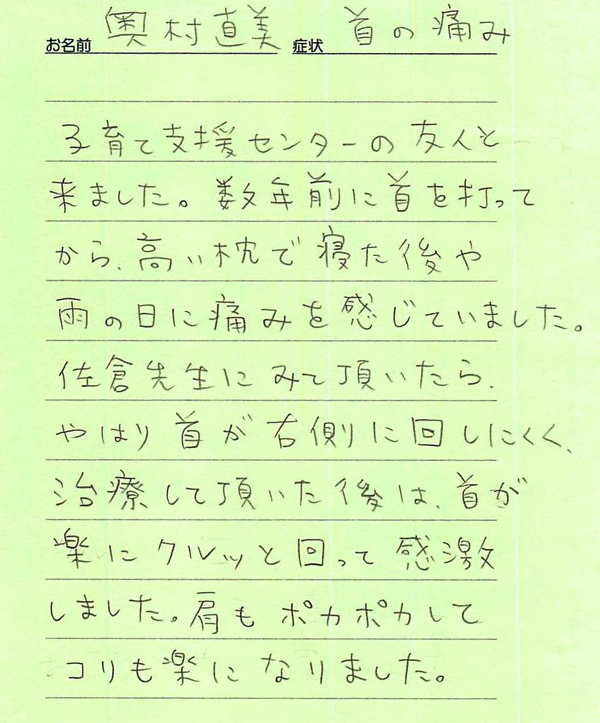 お名前 奥村直美 症状 首の痛み
子育て支援センターの友人と
来ました。数年前に首を打って
から、高い枕で寝た後や
雨の日に痛みを感じていました。
佐倉先生にみて頂いたら、
やはり首が右側に回しにくく、
治療して頂いた後は、首が
楽にクルッと回って感激
しました。肩もポカポカして
コリも楽になりました。